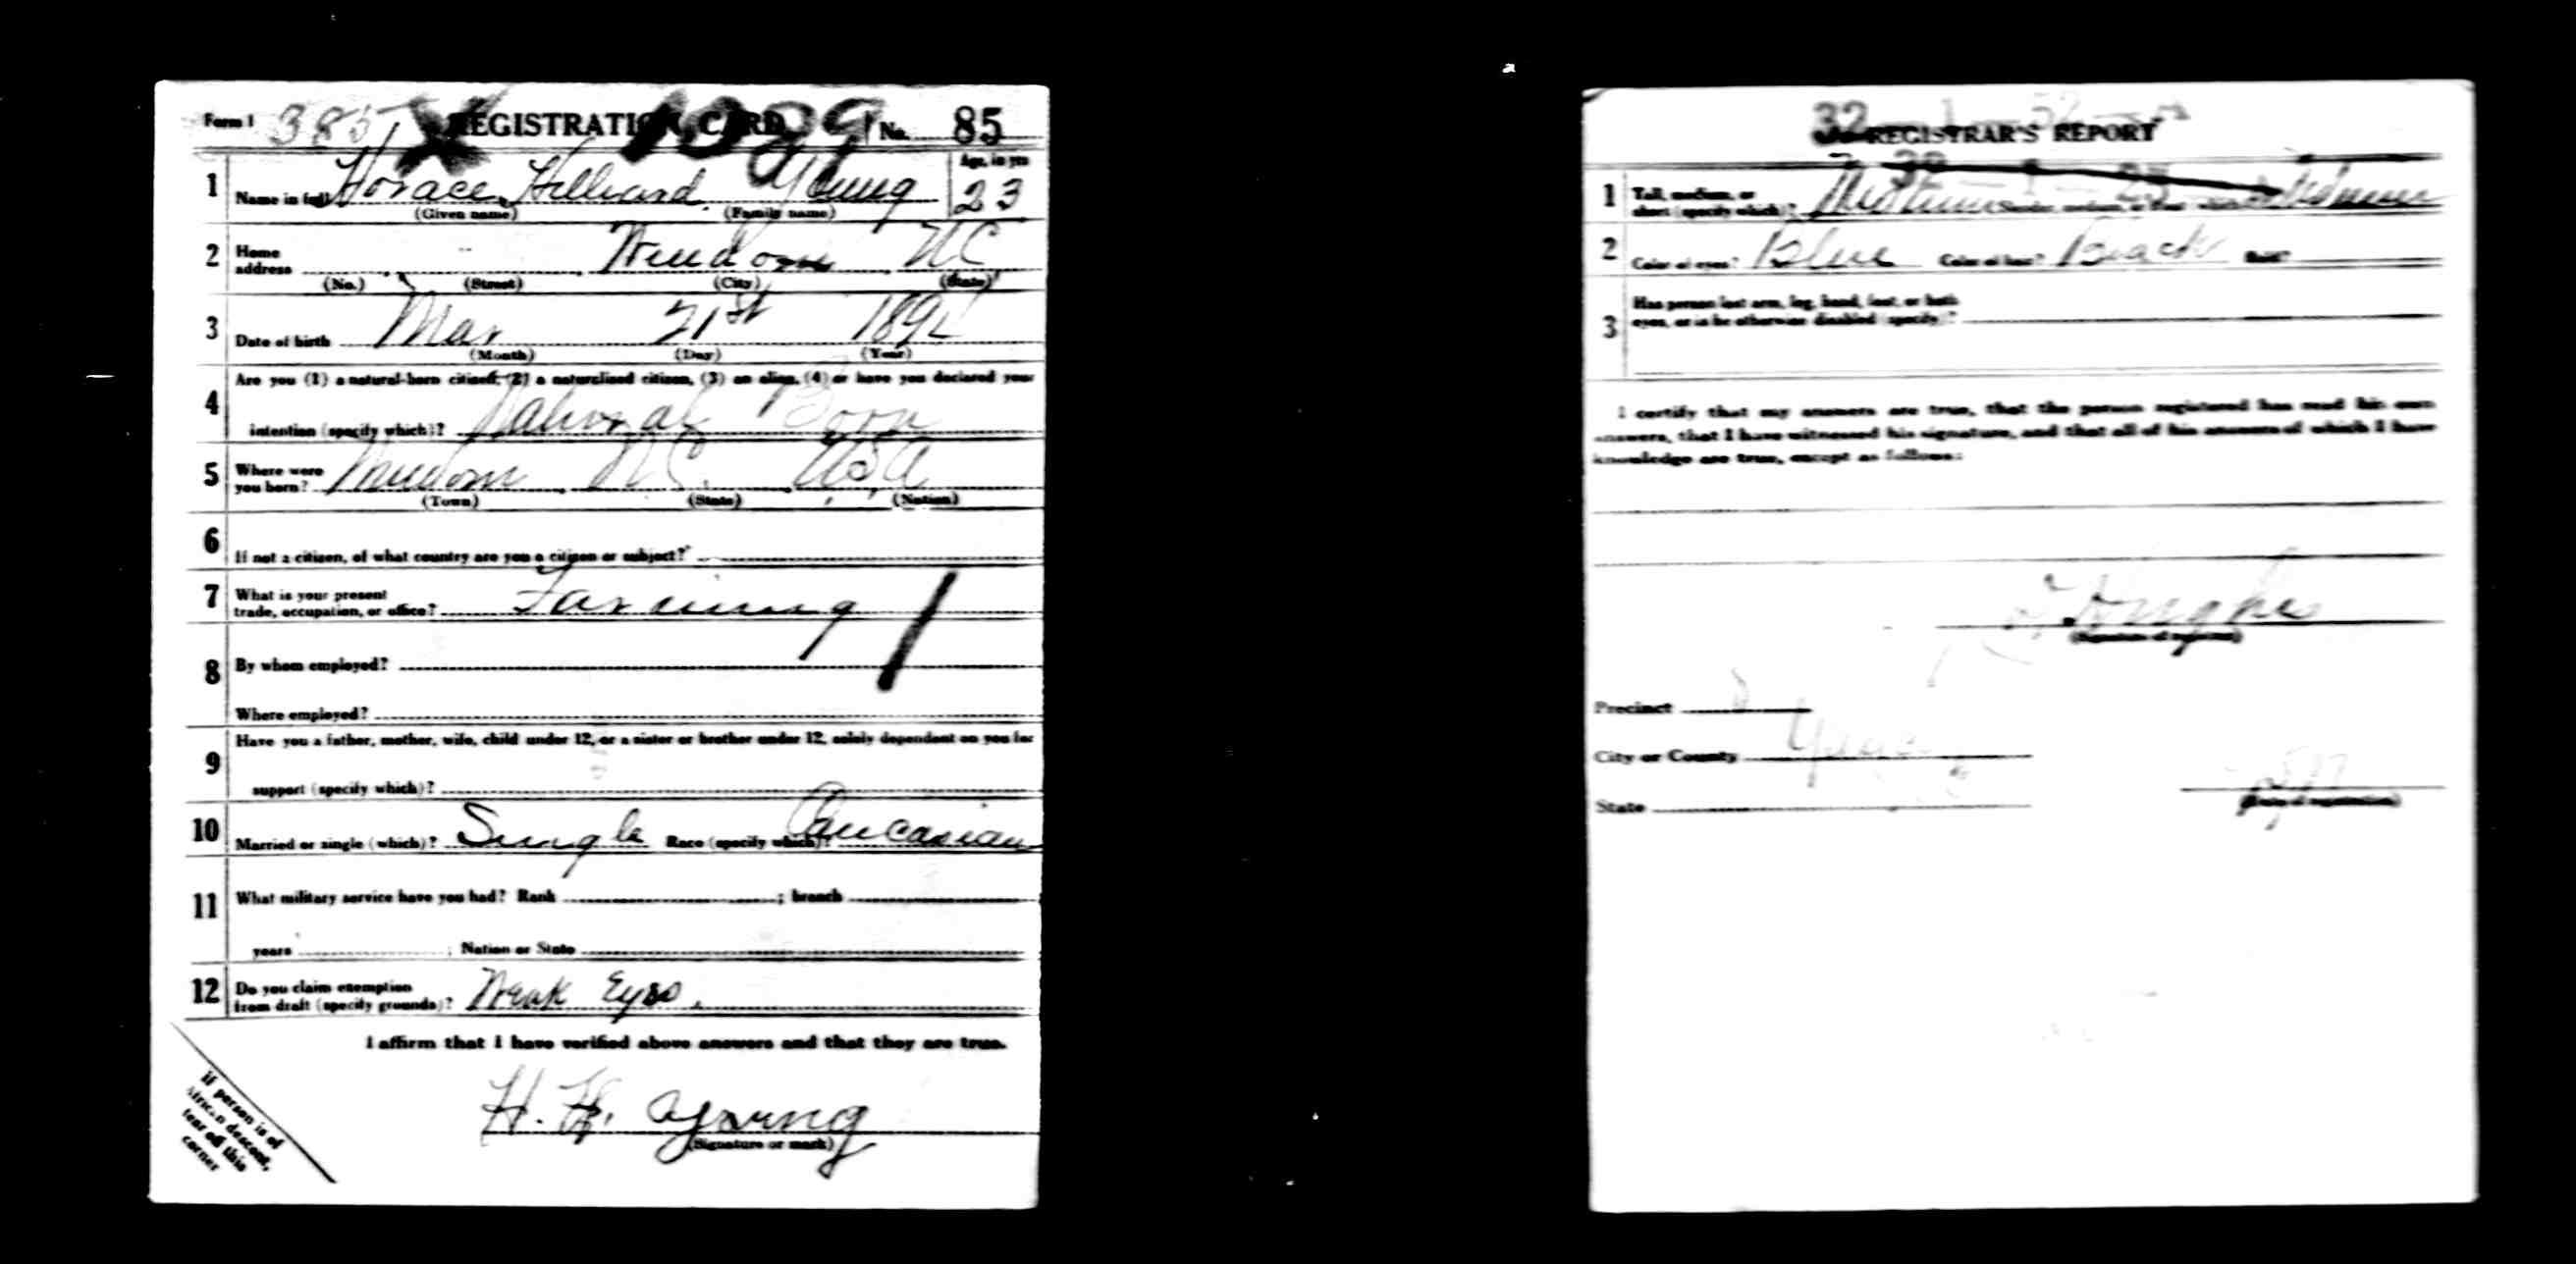 Form 1 385 REGISTRATION CARD No. 85
1 Name in full Horace Hilliard Young Age, in yrs 23
(Given name) (Family name)
2 Home address Windom NC
(No.) (Street) (City) (State)
3 Date of birth Mar 21st
(Month) (Day) (Year)
4 Are you (1) a natural-born citizen, (2) a naturalized citizen, (3) an alien, (4) or have you declared your
intention (specify which)? Natural Born
5 Where were you born? Windom N.C. USA
(Town) (State) (Nation)
6 If not a citizen, of what country are you a citizen or subject?
7 What is your present trade, occupation, or office? Farming
8 By whom employed?
Where employed?
9 Have you a father, mother, wife, child under 12, or a sister or brother under 12, solely dependent on you for
support (specify which)?
10 Married or single (which)? Single Race (specify which)? Caucasian
11 What military service have you had? Rank ; branch
years ; Nation or State
12 Do you claim exemption from draft (specify grounds)? Weak Eyes.
I affirm that I have verified above answers and that they are true.
H. H. Young
(Signature or mark)
If person is of
African descent,
tear off this
corner
32
REGISTRAR'S REPORT
1 Tall, medium, or short (specify which)? Medium Slender, medium, or stout (which)?
2 Color of eyes? Blue Color of hair? Black Bald?
3 Has person lost arm, leg, hand, foot, or both
eyes, or is he otherwise disabled (specify)?
I certify that my answers are true, that the person registered has read his own
answers, that I have witnessed his signature, and that all of his answers of which I have
knowledge are true, except as follows:
(Signature of registrar)
Precinct
City or County
State
(Date of registration)